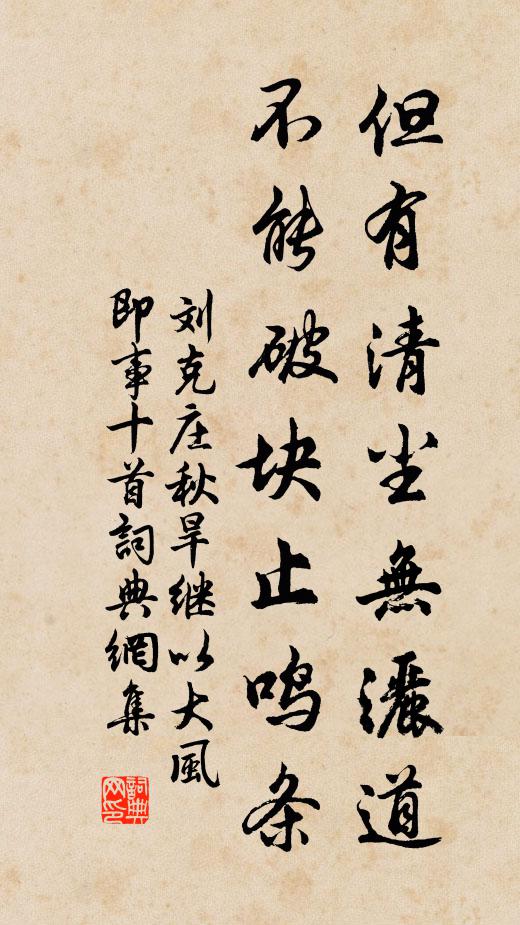 但有清尘無灑道
不能破块止鸣条
刘克庄秋旱继以大風
即事十首詞典網集
詞典
网印